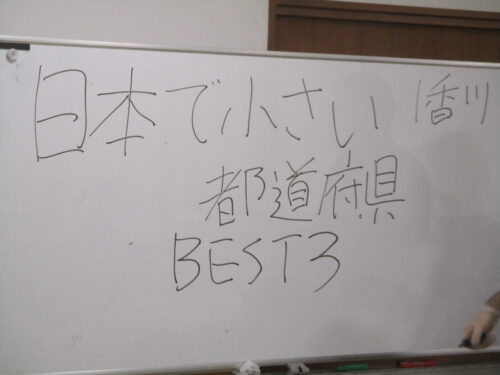 日本で小さい 1香川
都道府県
BEST3